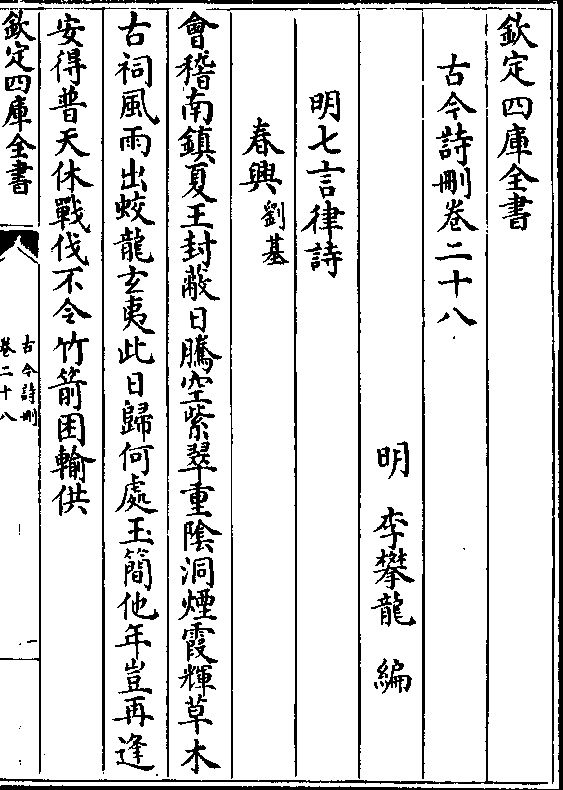 欽定四庫全書
古今詩刪卷二十八
明 李攀龍 編
明七言律詩
春興劉基
會稽南鎮夏王封蔽日騰空紫翠重陰洞煙霞輝草木
古祠風雨出蛟龍玄夷此日歸何處玉簡他年豈再逢
安得普天休戰伐不令竹箭困輸供
欽定四庫全書
古今詩刪
卷二十八
一